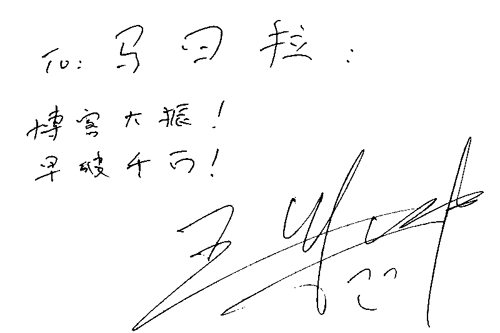 To: 马日拉:
博客大振!
早破千万!